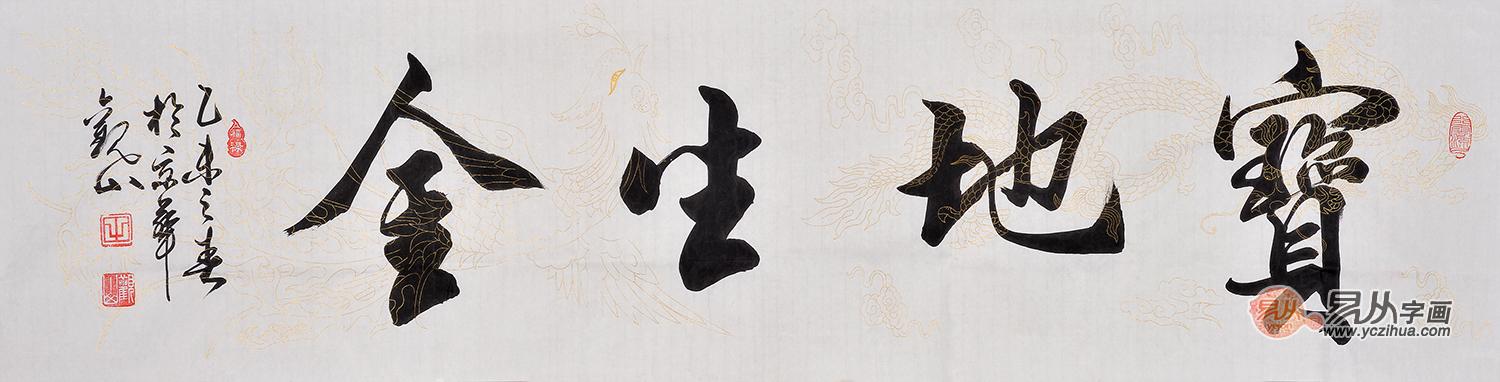 寶地生金
乙未之春
於京華
觀山
易从字画
www.yczihua.com